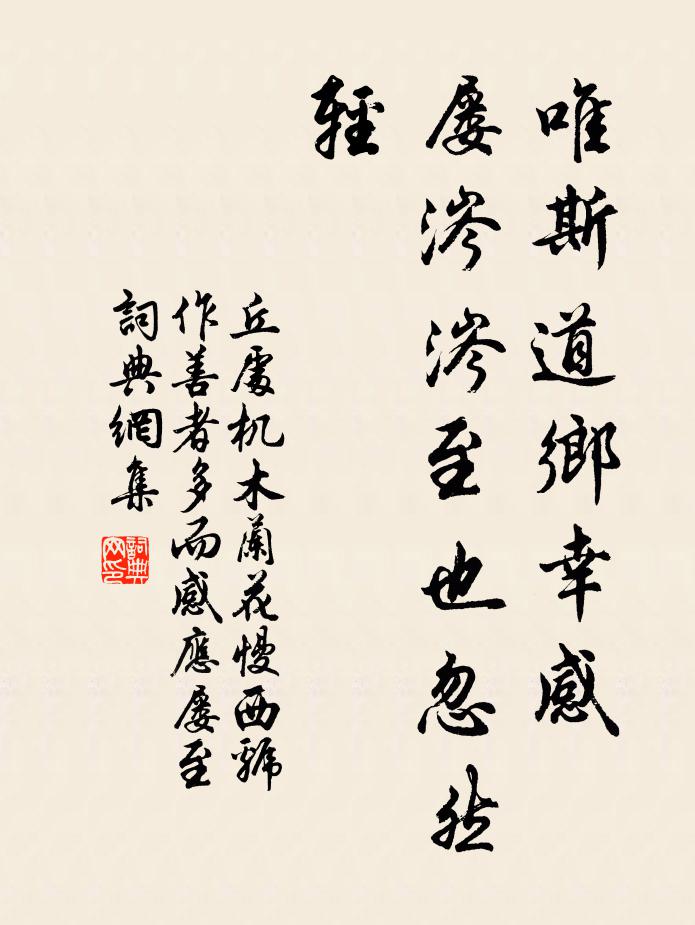 唯斯道鄉幸感
屢涔涔至也忽然
輕
丘處机木蘭花慢西虢
作善者多而感應屢至
詞典網集
詞典
网印